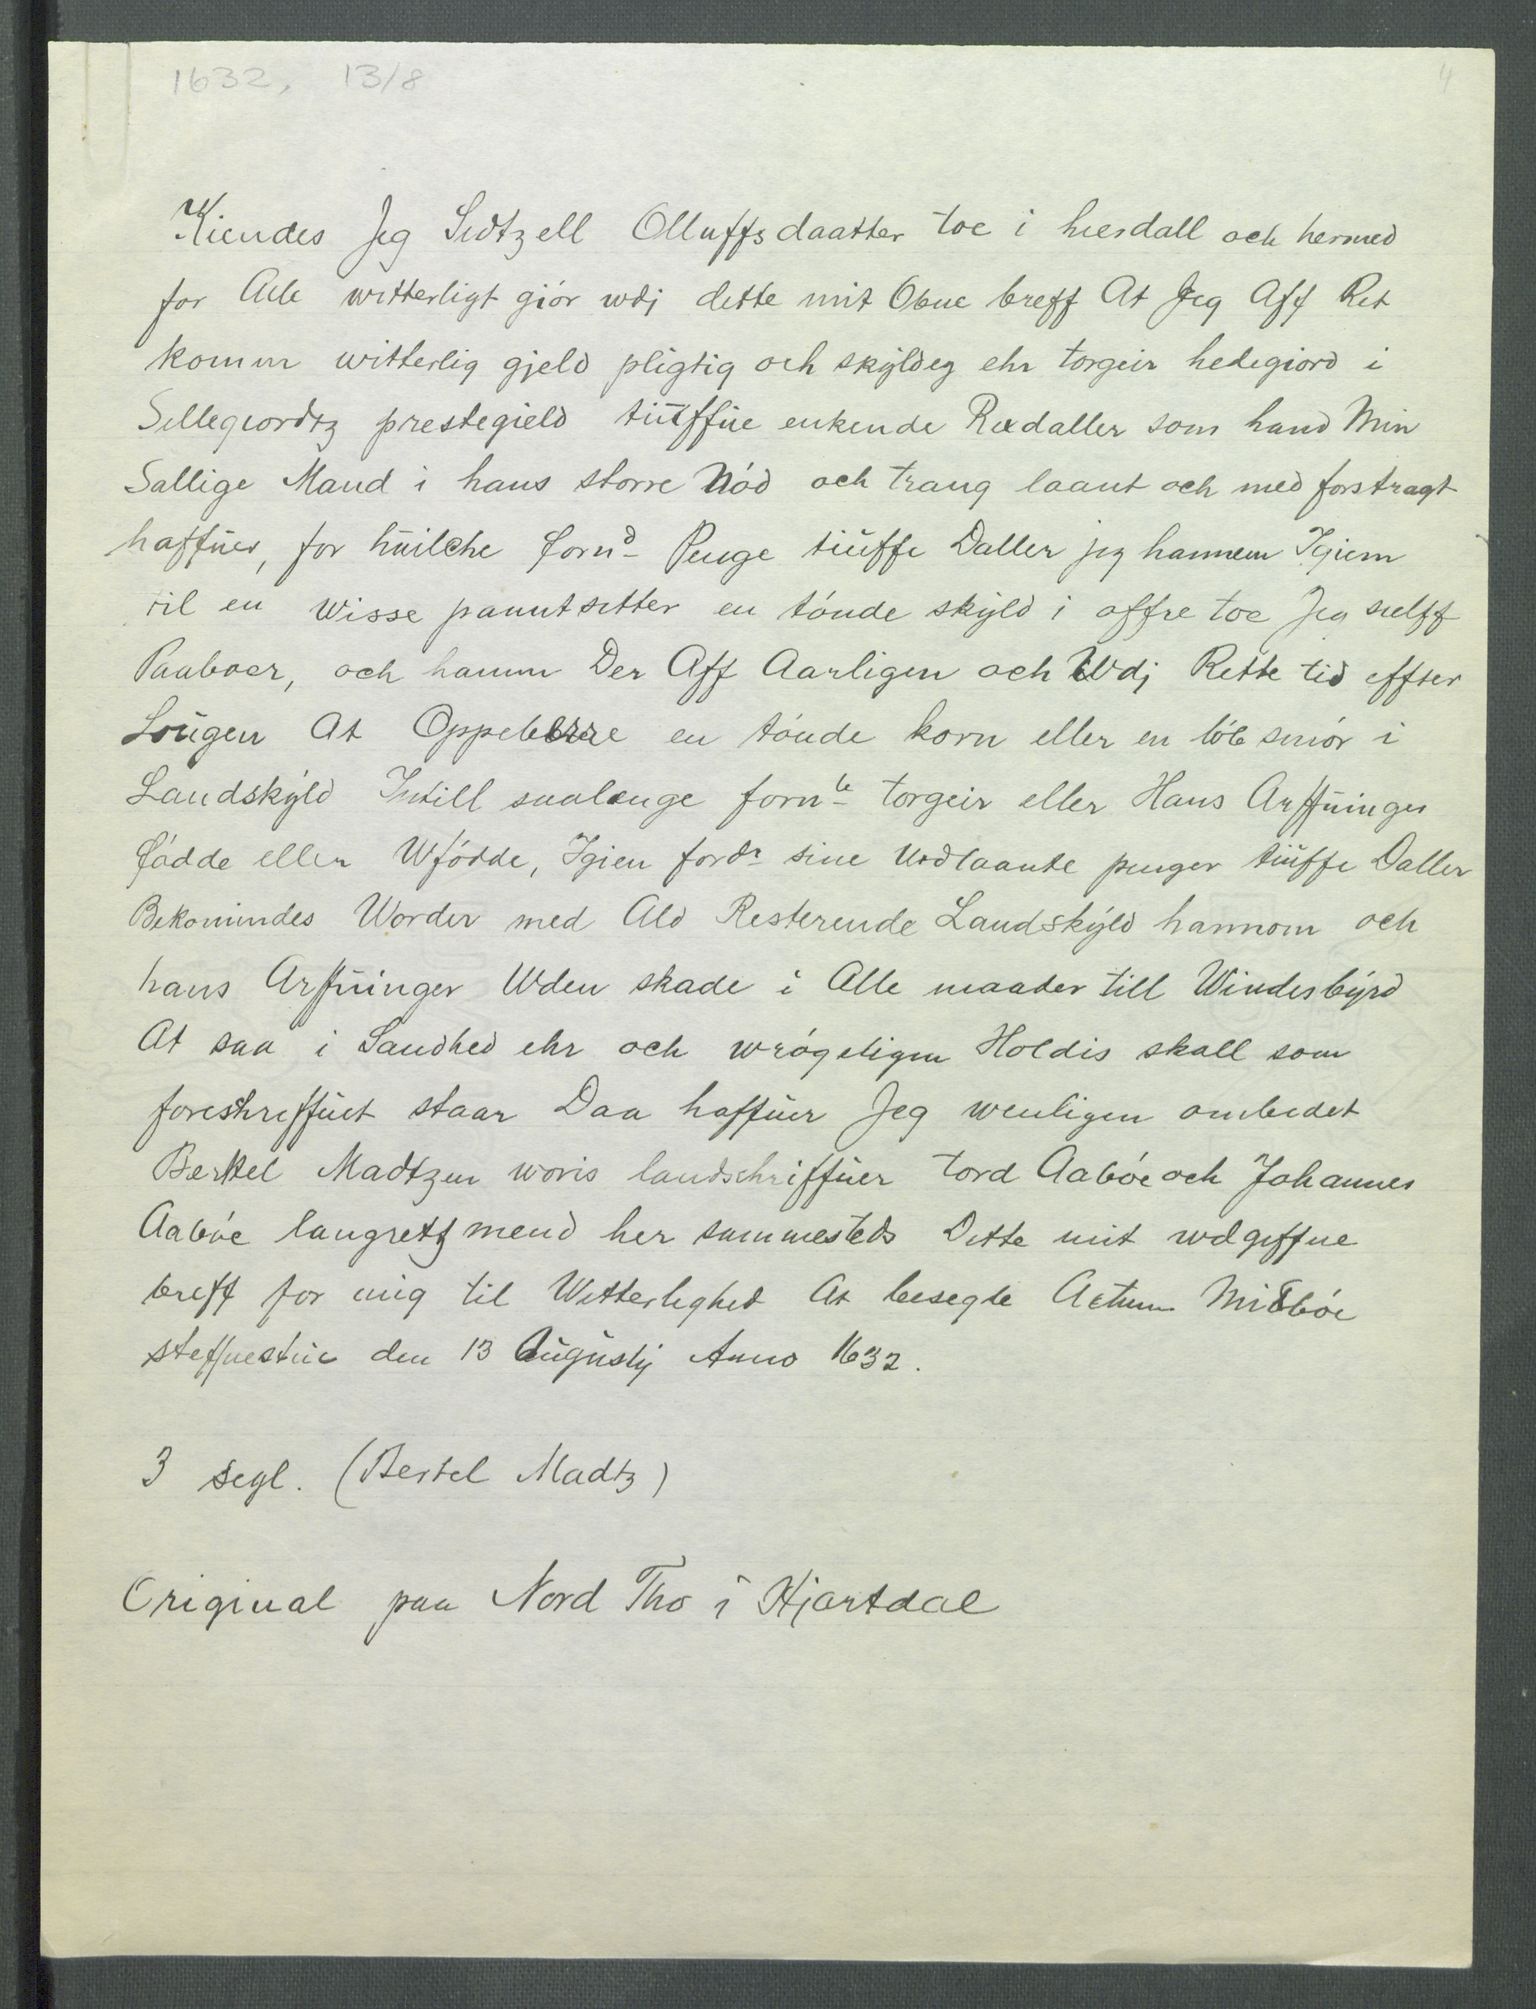 1632, 13/8
4
Kiendes Jeg Sidtzell Olluffsdaatter toe i hierdall och hermed
for Alle witterligt giór wdj dette mit Obne breff At Jeg Aff Ret
kommn witterlig gjeld pligtig och skÿldig ehr torgeir hedegiord i
Sillegiordtz prestegield tiüffüe enkende Rixdaller som hand Min
Sallige Mand i hans storre Nód och trang laant och med forstragt
haffuer, for hüilche fornd Penge tiüffe Daller jeg hannem Igiem
til en wisse panntsetter en tónde skÿld i offre toe Jeg sielff
Paaboer, och hamm Der Aff Aarligen och Wdj Rette tid effter
Loügen At Oppebere en tónde korn eller en lób smór i
Landskÿld Intill saalenge fornte torgeir eller Hans Arffuinger
fódde eller Wfódde, Igien fordr sine Udlaante penger tiüffe Daller
Bekommdes Worder med Ald Resterende Landskÿld hannom och
hans Arffuinger Uden skade i Alle maader till Windesbÿrd
At saa i Sandhed ehr och wrógeligen Holdis skall som
foreskreffuet staar Daa haffüer Jeg wenligen ombedet
Bertel Madtzen woris landschriffüer tord Aabóe och Johannes
Aabóe laugretz mend her sammesteds Dette mit wdgiffne
breff for mig til Witterlighed At besegle Actum Mibóe
steffnestüe den 13 Augüstij Anno 1632.
3 segl. (Bertel Madtz)
Original paa Nord Tho i Hjartdal